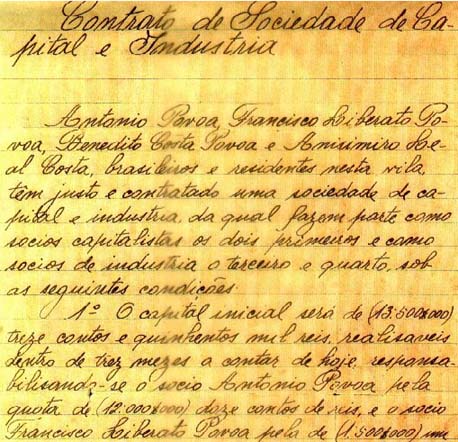 Contrato de Sociedade de Ca-
pital e Industria
Antonio Povoa, Francisco Liberato Po-
voa, Benedito Costa Povoa e Anisimiro Le-
al Costa, brasileiros e residentes nesta vila,
têm justo e contratado uma sociedade de ca-
pital e industria, da qual fazem parte como
socios capitalistas os dois primeiros e como
socios de industria o terceiro e quarto, sob
as seguintes condições:
1º O capital inicial será de (13.500$000)
treze contos e quinhentos mil reis, realisaveis
dentro de trez mezes a contar de hoje, responsa-
bilisando-se o socio Antonio Povoa pela
quota de (12.000$000) doze contos de reis, e o socio
Francisco Liberato Povoa pela de (1.500$000) um